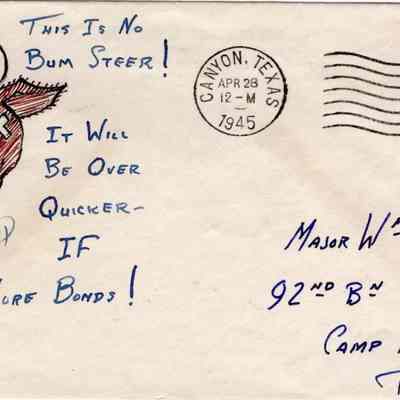 THIS IS NO
BUM STEER!
IT WILL
BE OVER
QUICKER-
IF
BONDS!
CANYON, TEXAS
APR 28
12-M
1945
MAJOR WM
92ND BN
CAMP